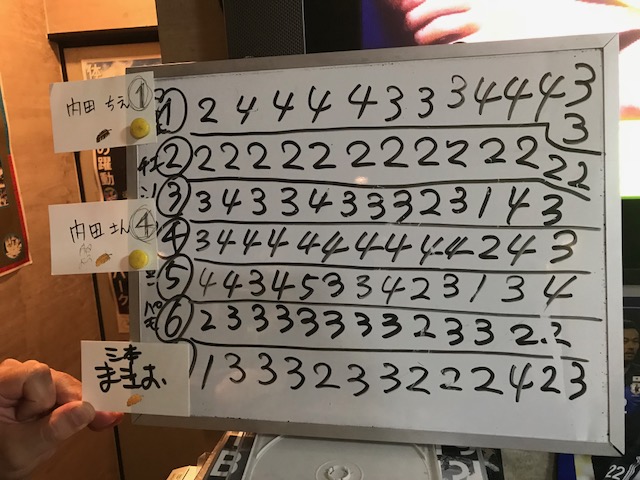 内田ちえ①
① 2 4 4 4 4 3 3 3 4 4 4 3
3
② 2 2 2 2 2 2 2 2 2 2 2 2
2 2
③ 3 4 3 3 4 3 3 3 2 3 1 4 3
内田さん④
④ 3 4 4 4 4 4 4 4 4 4 2 4 3
⑤ 4 4 3 4 5 3 3 4 2 3 1 3 4
⑥ 2 3 3 3 3 3 3 3 2 3 3 2 2
1 3 3 3 2 3 3 2 2 2 4 2 3
の躍動
パーク
22